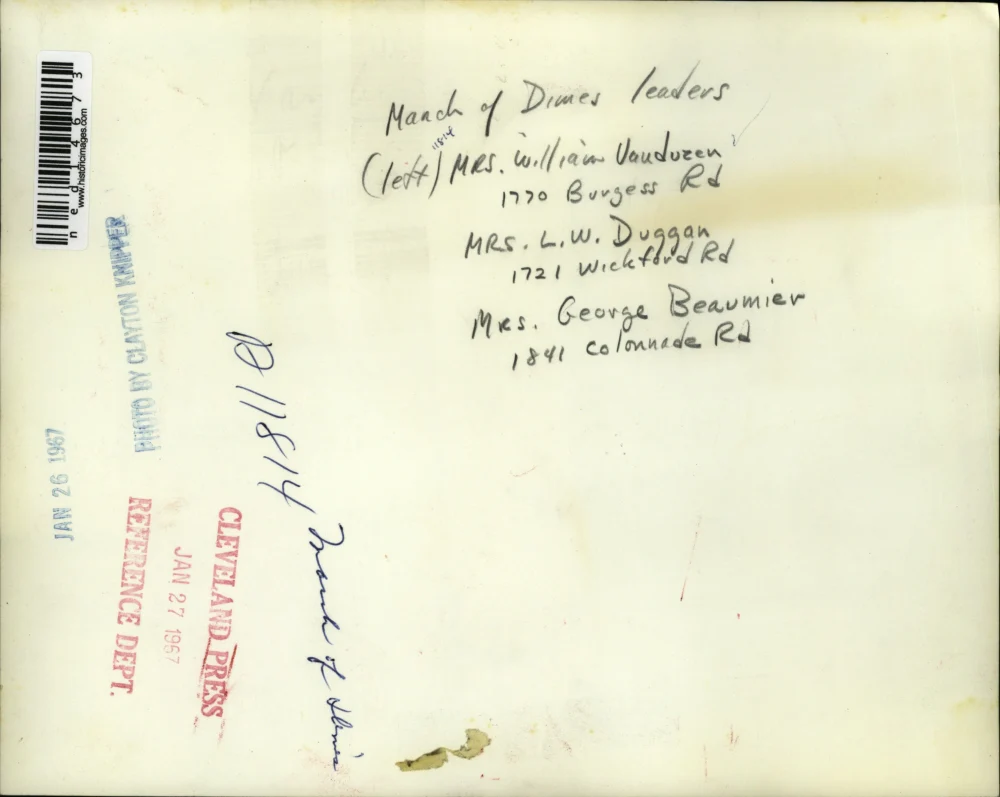 March of Dimes leaders
11814
(left) MRS. William Vanduzen
1770 Burgess Rd
MRS. L.W. Duggan
1721 Wickford Rd
Mrs. George Beaumier
1841 Colonnade Rd
ned114673
www.historicimages.com
PHOTO BY CLAYTON KNIPPER
JAN 26 1967
D 11814 March of Dimes
CLEVELAND PRESS
JAN 27 1967
REFERENCE DEPT.